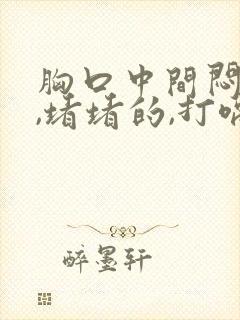 胸口中間悶
,堵堵的,打嗝
醉墨轩